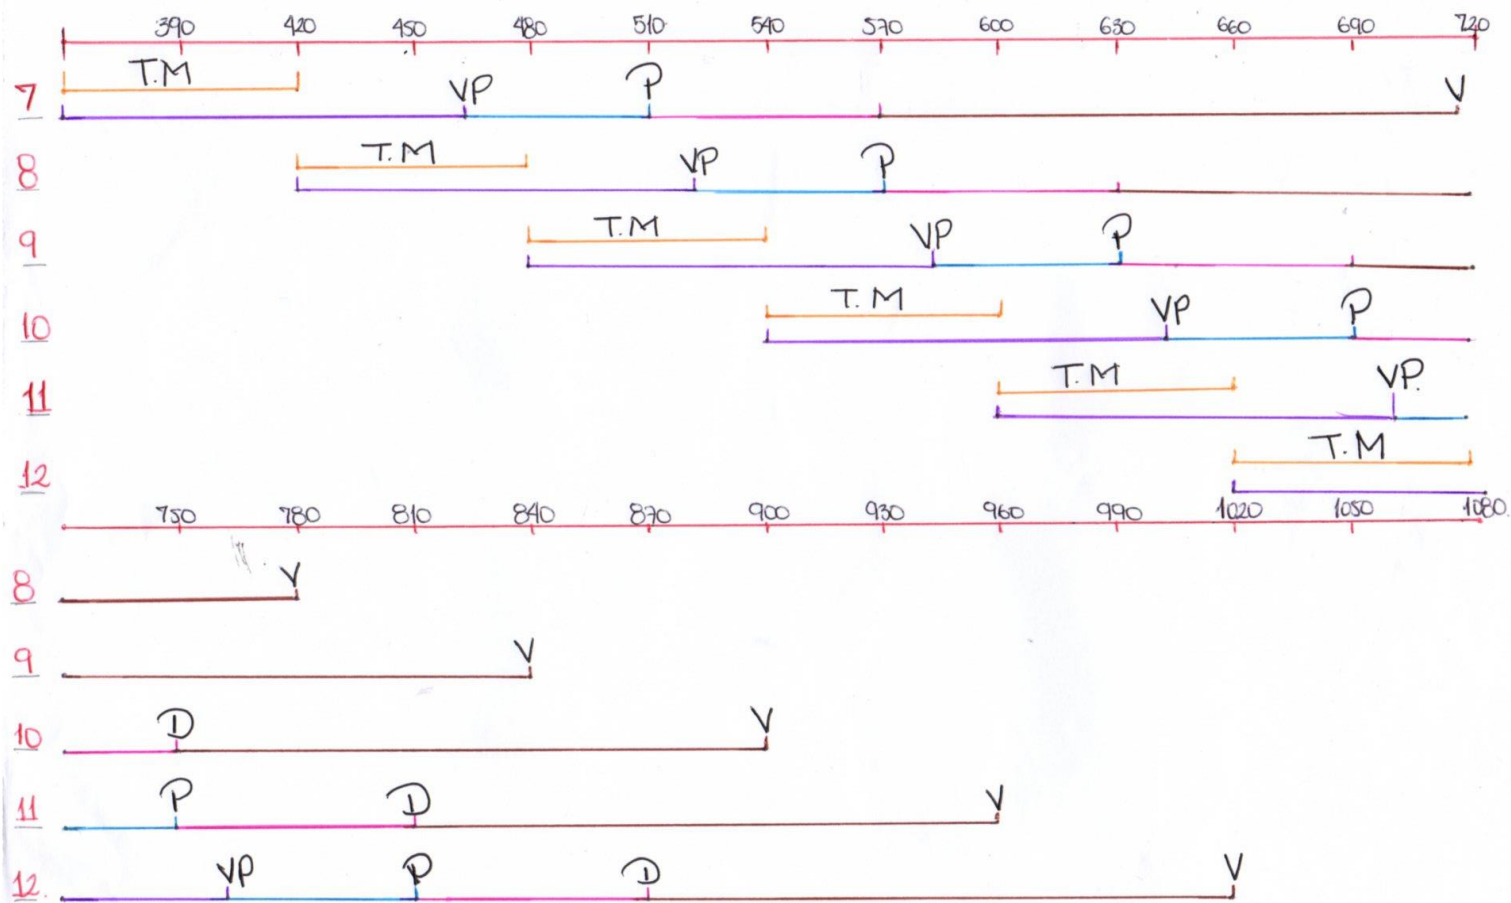 390 420 450 480 510 540 570 600 630 660 690 720
T.M
7 VP P V
T.M
8 VP P
T.M
9 VP P
T.M
10 VP P
T.M
11 VP.
T.M
12
750 780 810 840 870 900 930 960 990 1020 1050 1080.
8 V
9 V
10 D V
11 P D V
12. VP P D V